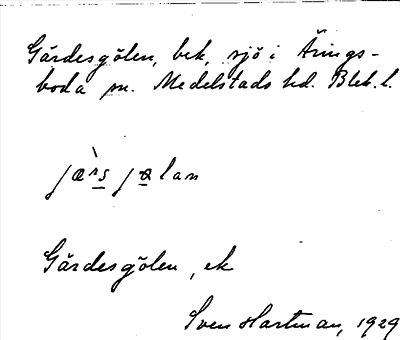 Gärdesgölen, bek, sjö i Ärings-
boda sn. Medelstads hd. Blek. l.
jæ̀rs jɵlan
Gärdesgölen, ek
Sven Hartman, 1929